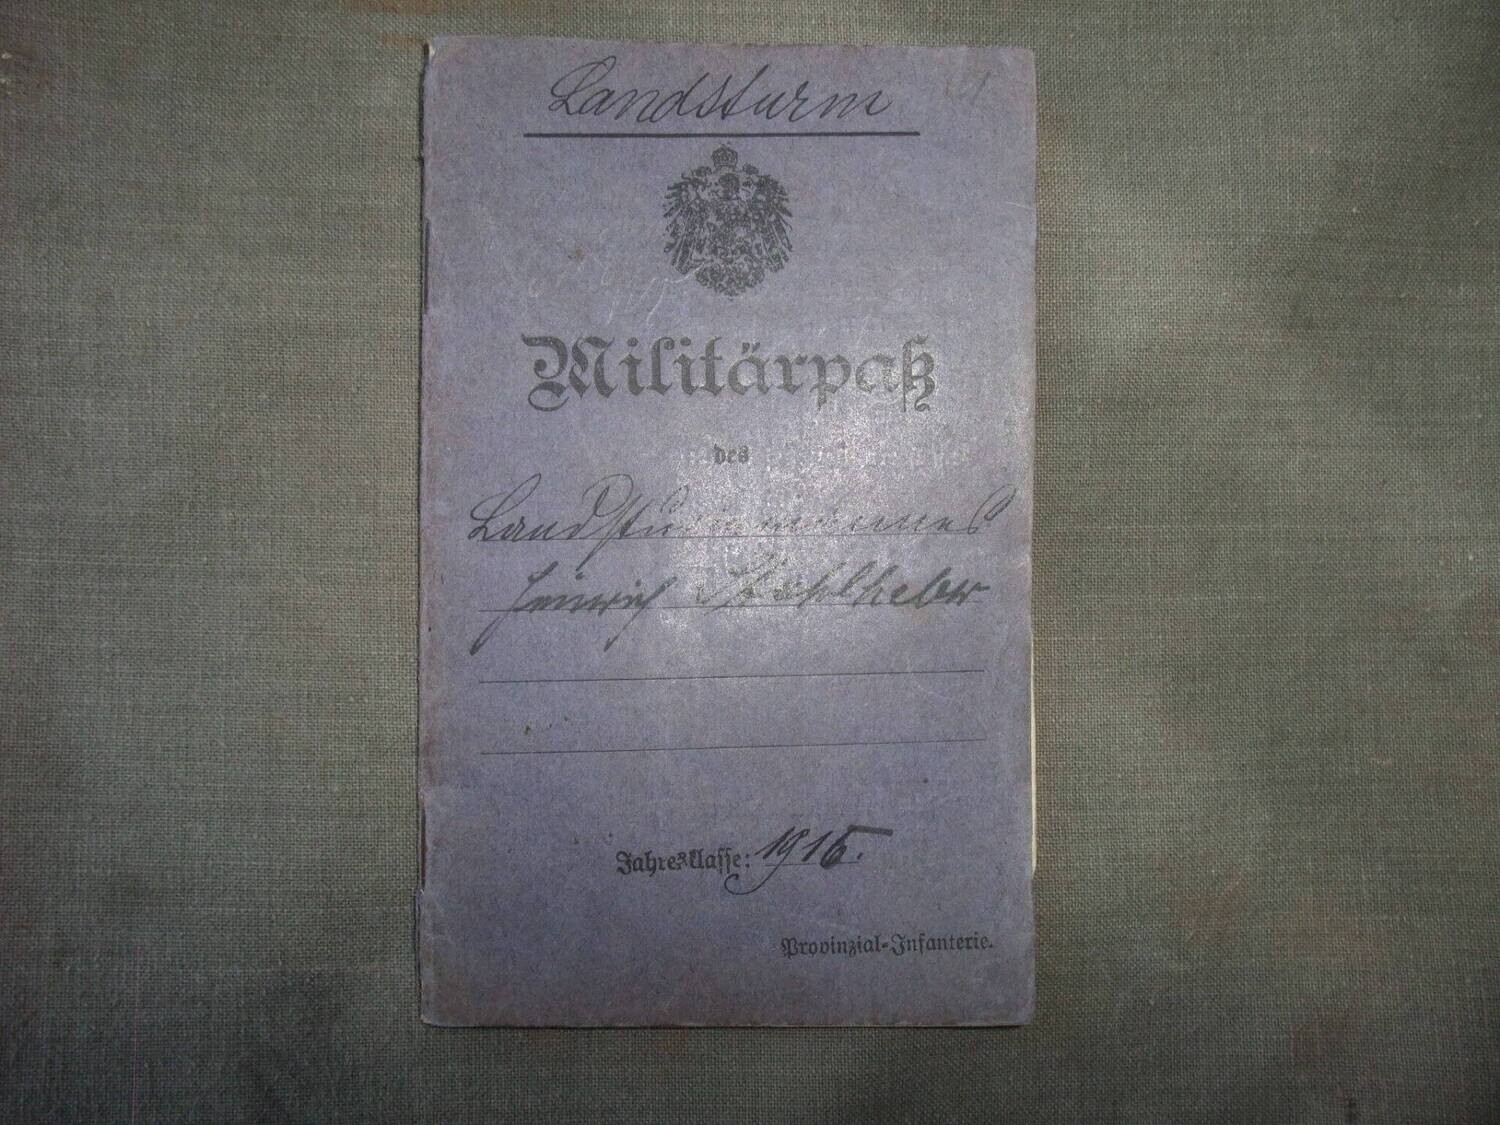 Landsturm
Militärpaß
des
Landsturmmannes
Heinrich Stahlheber
Jahresklasse: 1915.
Provinzial-Infanterie.